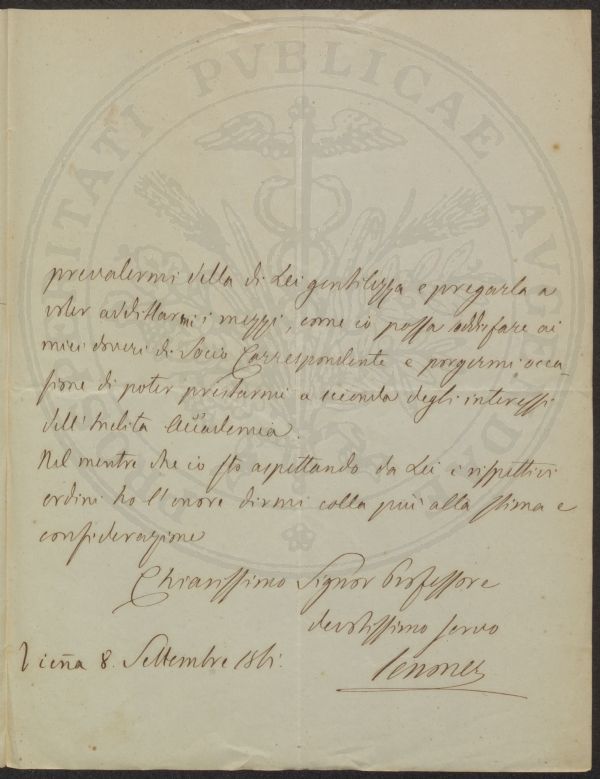 PROSPERITATI PVBLICAE AVGENDAE
prevalermi della di Lei gentilezza e pregarla a
voler additarmi i mezzi, come io possa addisfare ai
miei doveri di Socio Correspondente e porgermi occa-
sione di poter prestarmi a seconda degli interessi
dell'Inclita Accademia.
Nel mentre che io sto aspettando da Lei i rispettivi
ordini ho l'onore dirmi colla più alta stima e
considerazione
Chiarissimo Signor Professore
devotissimo servo
Vieña 8. Settembre 1861.